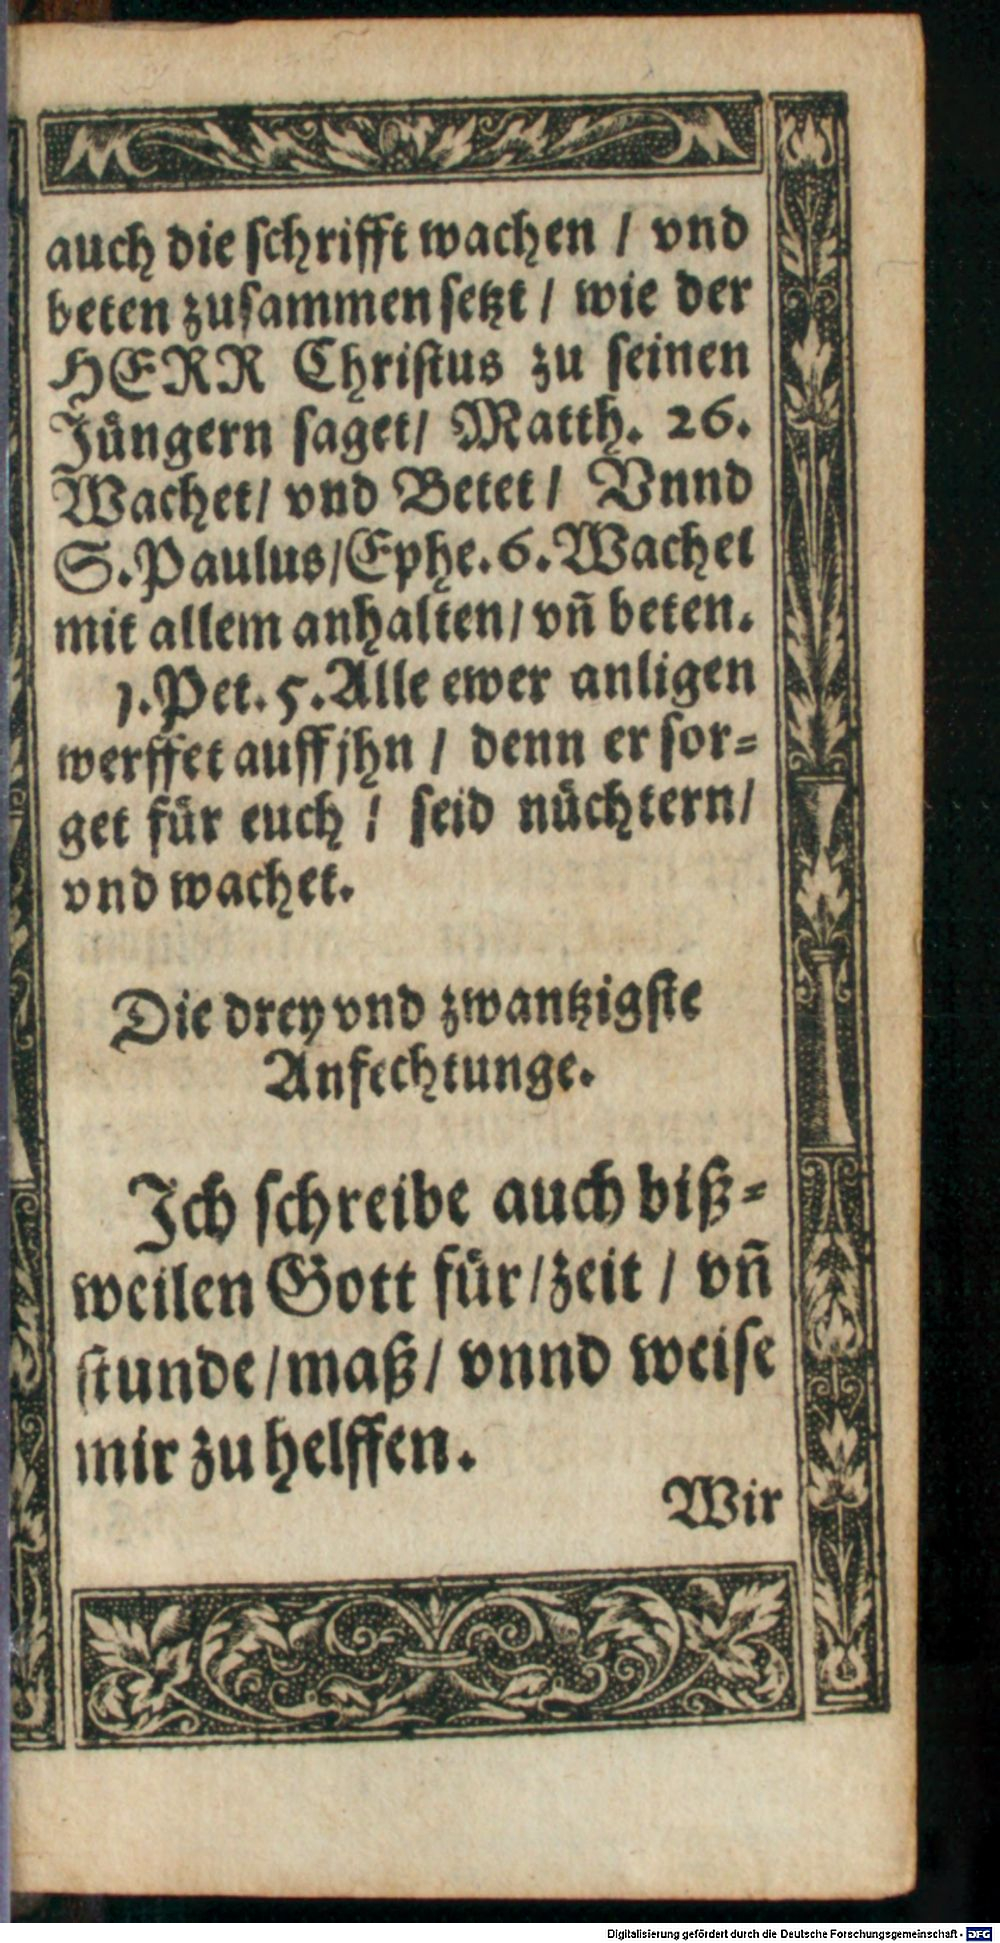 auch die schrifft wachen / vnd
beten zusammen setzt / wie der
HERR Christus zu seinen
Jüngern saget/ Matth. 26.
Wachet/ vnd Betet/ Vnnd
S. Paulus/Ephe. 6. Wachet
mit allem anhalten/ vñ beten.
1. Pet. 5. Alle ewer anligen
werffet auff jhn / denn er sor=
get für euch / seid nüchtern/
vnd wachet.
Die drey vnd zwantzigste
Anfechtunge.
Ich schreibe auch biß=
weilen Gott für/zeit / vñ
stunde/maß/ vnnd weise
mir zu helffen.
Wir
Digitalisierung gefördert durch die Deutsche Forschungsgemeinschaft - DFG